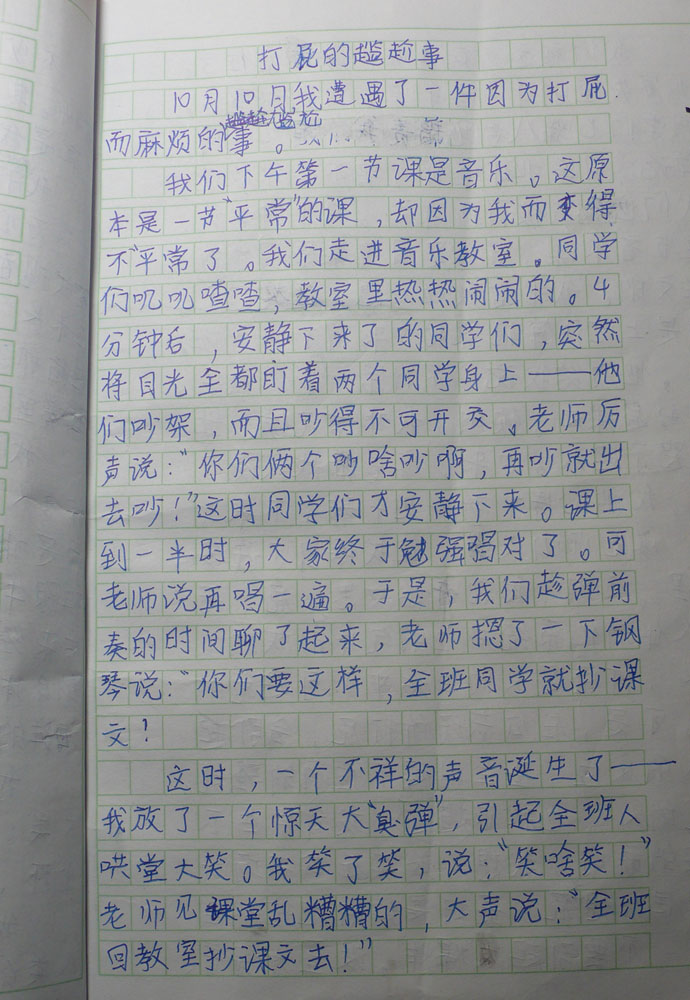 打屁的尴尬事
10月10日我遭遇了一件因为打屁
而麻烦的尴尬事。
我们下午第一节课是音乐。这原
本是一节“平常”的课，却因为我而变得
不“平常了。我们走进音乐教室。同学
们叽叽喳喳，教室里热热闹闹的。4
分钟后，安静下来了的同学们，突然
将目光全都盯着两个同学身上——他
们吵架，而且吵得不可开交。老师厉
声说：“你们俩个吵啥吵啊，再吵就出
去吵！”这时同学们才安静下来。课上
到一半时，大家终于勉强唱对了。可
老师说再唱一遍。于是，我们趁弹前
奏的时间聊了起来，老师摁了一下钢
琴说：“你们要这样，全班同学就抄课
文！
这时，一个不祥的声音诞生了——
我放了一个惊天大“臭弹”，引起全班人
哄堂大笑。我笑了笑，说：“笑啥笑！”
老师见课堂乱糟糟的，大声说：“全班
回教室抄课文去！”